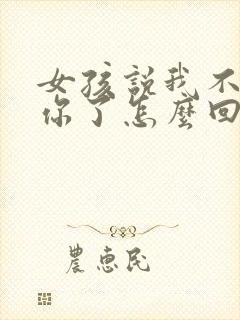 女孩說我不
你了怎麼回
農惠民